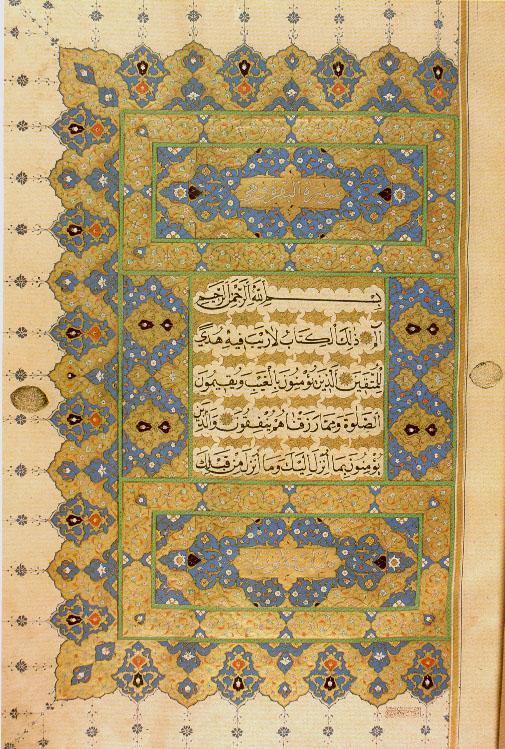 سورة البقرة
بِسْمِ اللهِ الرَّحْمٰنِ الرَّحِيمِ
الٓمٓ ذٰلِكَ الْكِتَابُ لَا رَيْبَ فِيهِ هُدًى
لِلْمُتَّقِينَ الَّذِينَ يُؤْمِنُونَ بِالْغَيْبِ وَيُقِيمُونَ
الصَّلٰوةَ وَمِمَّا رَزَقْنَاهُمْ يُنْفِقُونَ وَالَّذِينَ
يُؤْمِنُونَ بِمَا اُنْزِلَ اِلَيْكَ وَمَا اُنْزِلَ مِنْ قَبْلِكَ